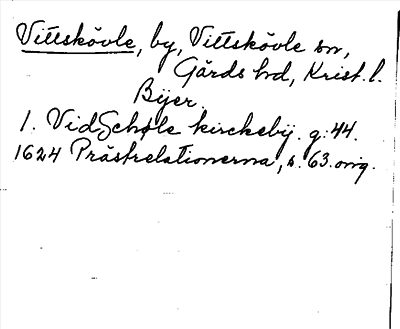 Vittskövle, by, Vittskövle sn,
Gärds hd, Krist. l.
Bÿer.
1. VidSchøle kirckebÿ. g: 44.
1624 Prästrelationerna, s. 63. orig.